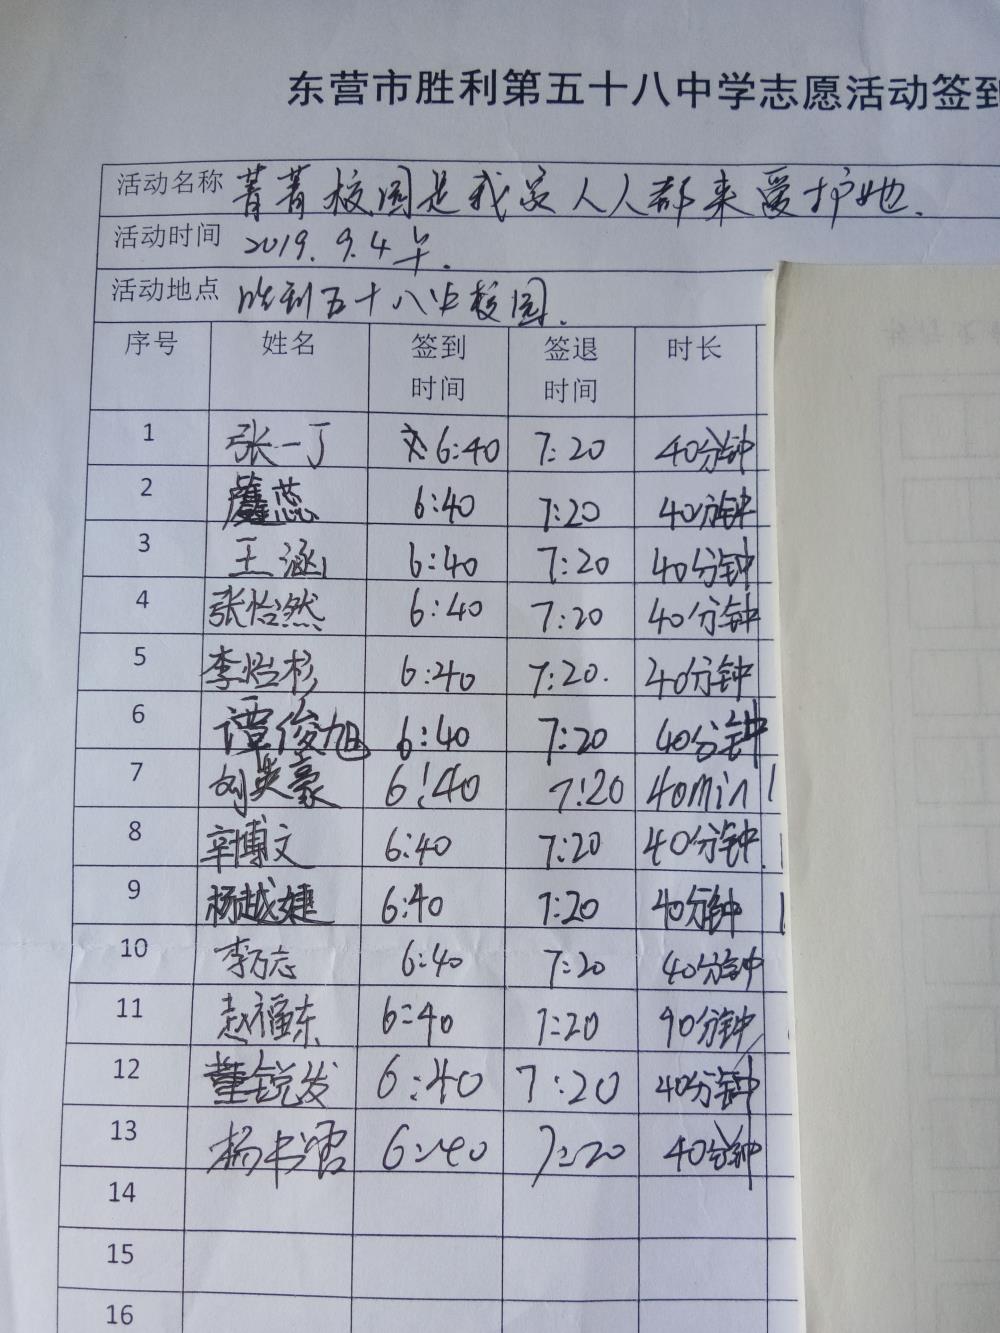 东营市胜利第五十八中学志愿活动签到
活动名称 菁菁校园是我家人人都来爱护她.
活动时间 2019.9.4午.
活动地点 胜利五十八中校园.
序号 姓名 签到时间 签退时间 时长
1 张一丁 6:40 7:20 40分钟
2 蕊 6:40 7:20 40分钟
3 王涵 6:40 7:20 40分钟
4 张怡然 6:40 7:20 40分钟
5 李怡杉 6:40 7:20. 40分钟
6 谭俊旭 6:40 7:20 40分钟
7 刘英豪 6:40 7:20 40min
8 辛博文 6:40 7:20 40分钟.
9 杨越婕 6:40 7:20 40分钟
10 李万志 6:40 7:20 40分钟
11 赵福东 6:40 7:20 90分钟
12 董锐发 6:40 7:20 40分钟
13 杨书 6:40 7:20 40分钟
14
15
16